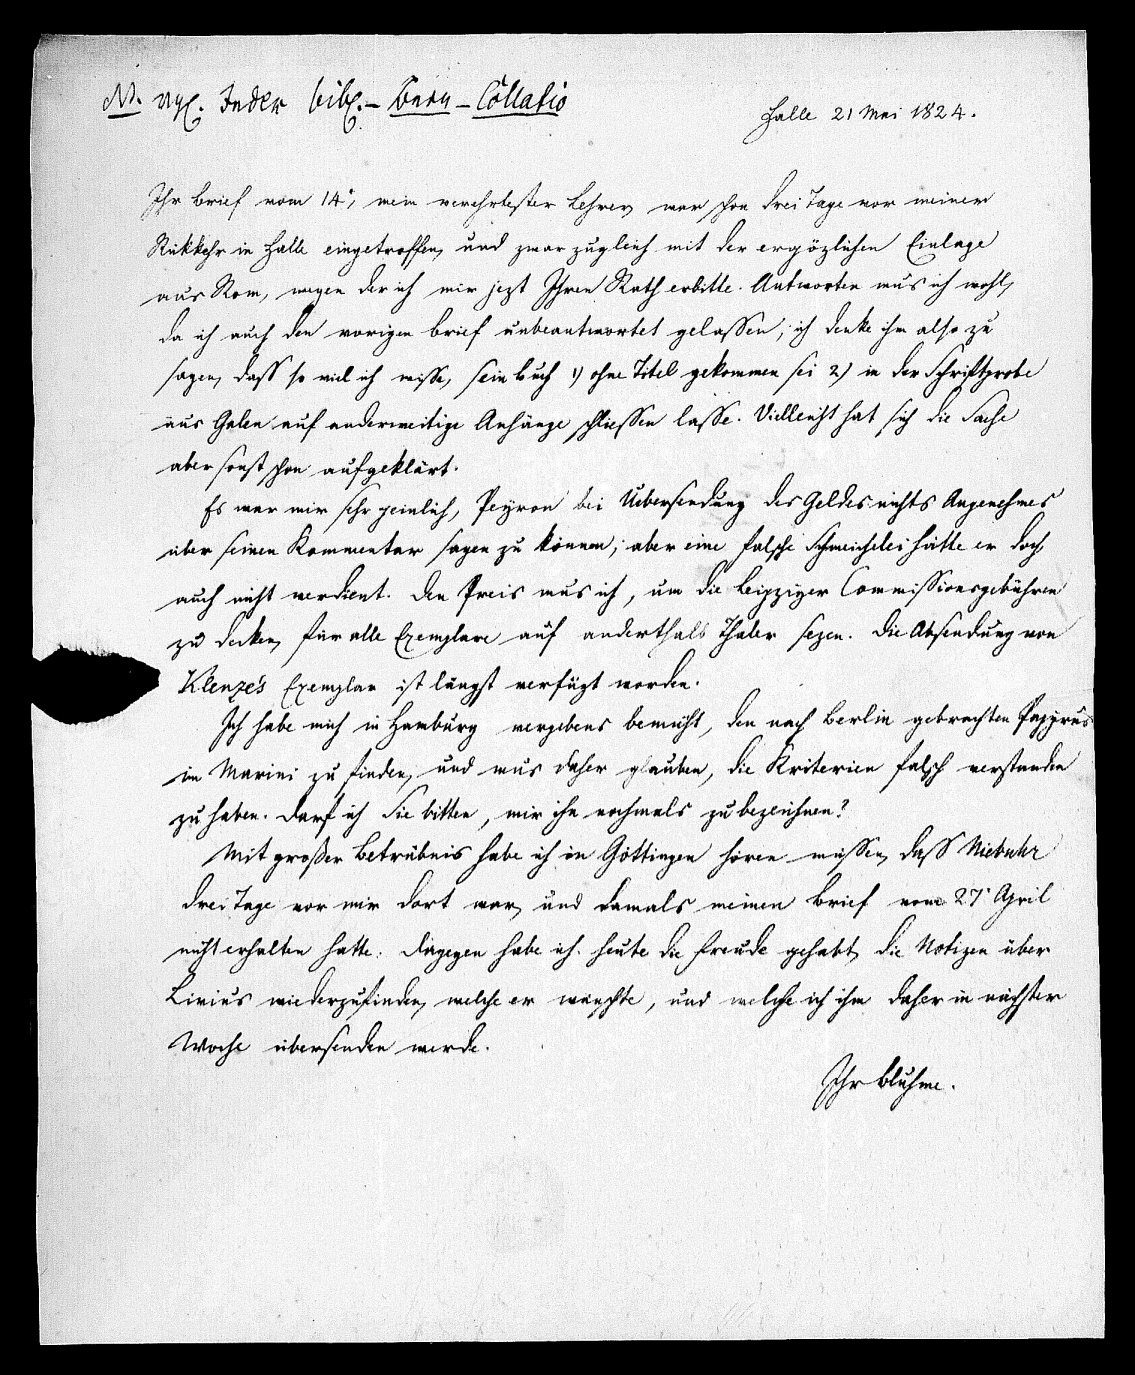 Index bibl. – – Collatio
Halle 21 Mai 1824.
Ihr Brief vom 14t, mein verehrtester Lehrer, war schon drei Tage vor meiner
Rükkehr in Halle eingetroffen, und zwar zugleich mit der ergözlichen Einlage
aus Rom, wegen der ich mir jezt Ihren Rath erbitte. Antworten mus ich wohl,
da ich auch den vorigen Brief unbeantwortet gelassen; ich denke ihm also zu
sagen, dass so viel ich wisse, sein Buch 1) ohne Titel gekommen sei 2) in der Schriftprobe
aus Galen auf anderweitige Anhänge schliessen lasse. Vielleicht hat sich die Sache
aber sonst schon aufgeklärt.
Es war mir sehr peinlich, Peyron bei Uebersendung des Geldes nichts Angenehmes
über seinen Kommentar sagen zu können; aber eine falsche Schmeichelei hätte er doch
auch nicht verdient. Den Preis mus ich, um die Leipziger Commissionsgebühren
zu decken, für alle Exemplare auf anderthalb Thaler sezen. Die Absendung von
Klenze's Exemplar ist längst verfügt worden.
Ich habe mich in Hamburg vergebens bemüht, den nach Berlin gebrachten Papyrus
im Marini zu finden, und mus daher glauben, die Kriterien falsch verstanden
zu haben. Darf ich Sie bitten, mir ihn nochmals zu bezeichnen?
Mit großer Betrübnis habe ich in Göttingen hören müssen, dass Niebuhr
drei Tage vor mir dort war, und damals meinen Brief vom 27t April
nicht erhalten hatte. Dagegen habe ich heute die Freude gehabt, die Notizen über
Livius wiederzufinden, welche er wünschte, und welche ich ihm daher in nächster
Woche übersenden werde.
Ihr Bluhme.